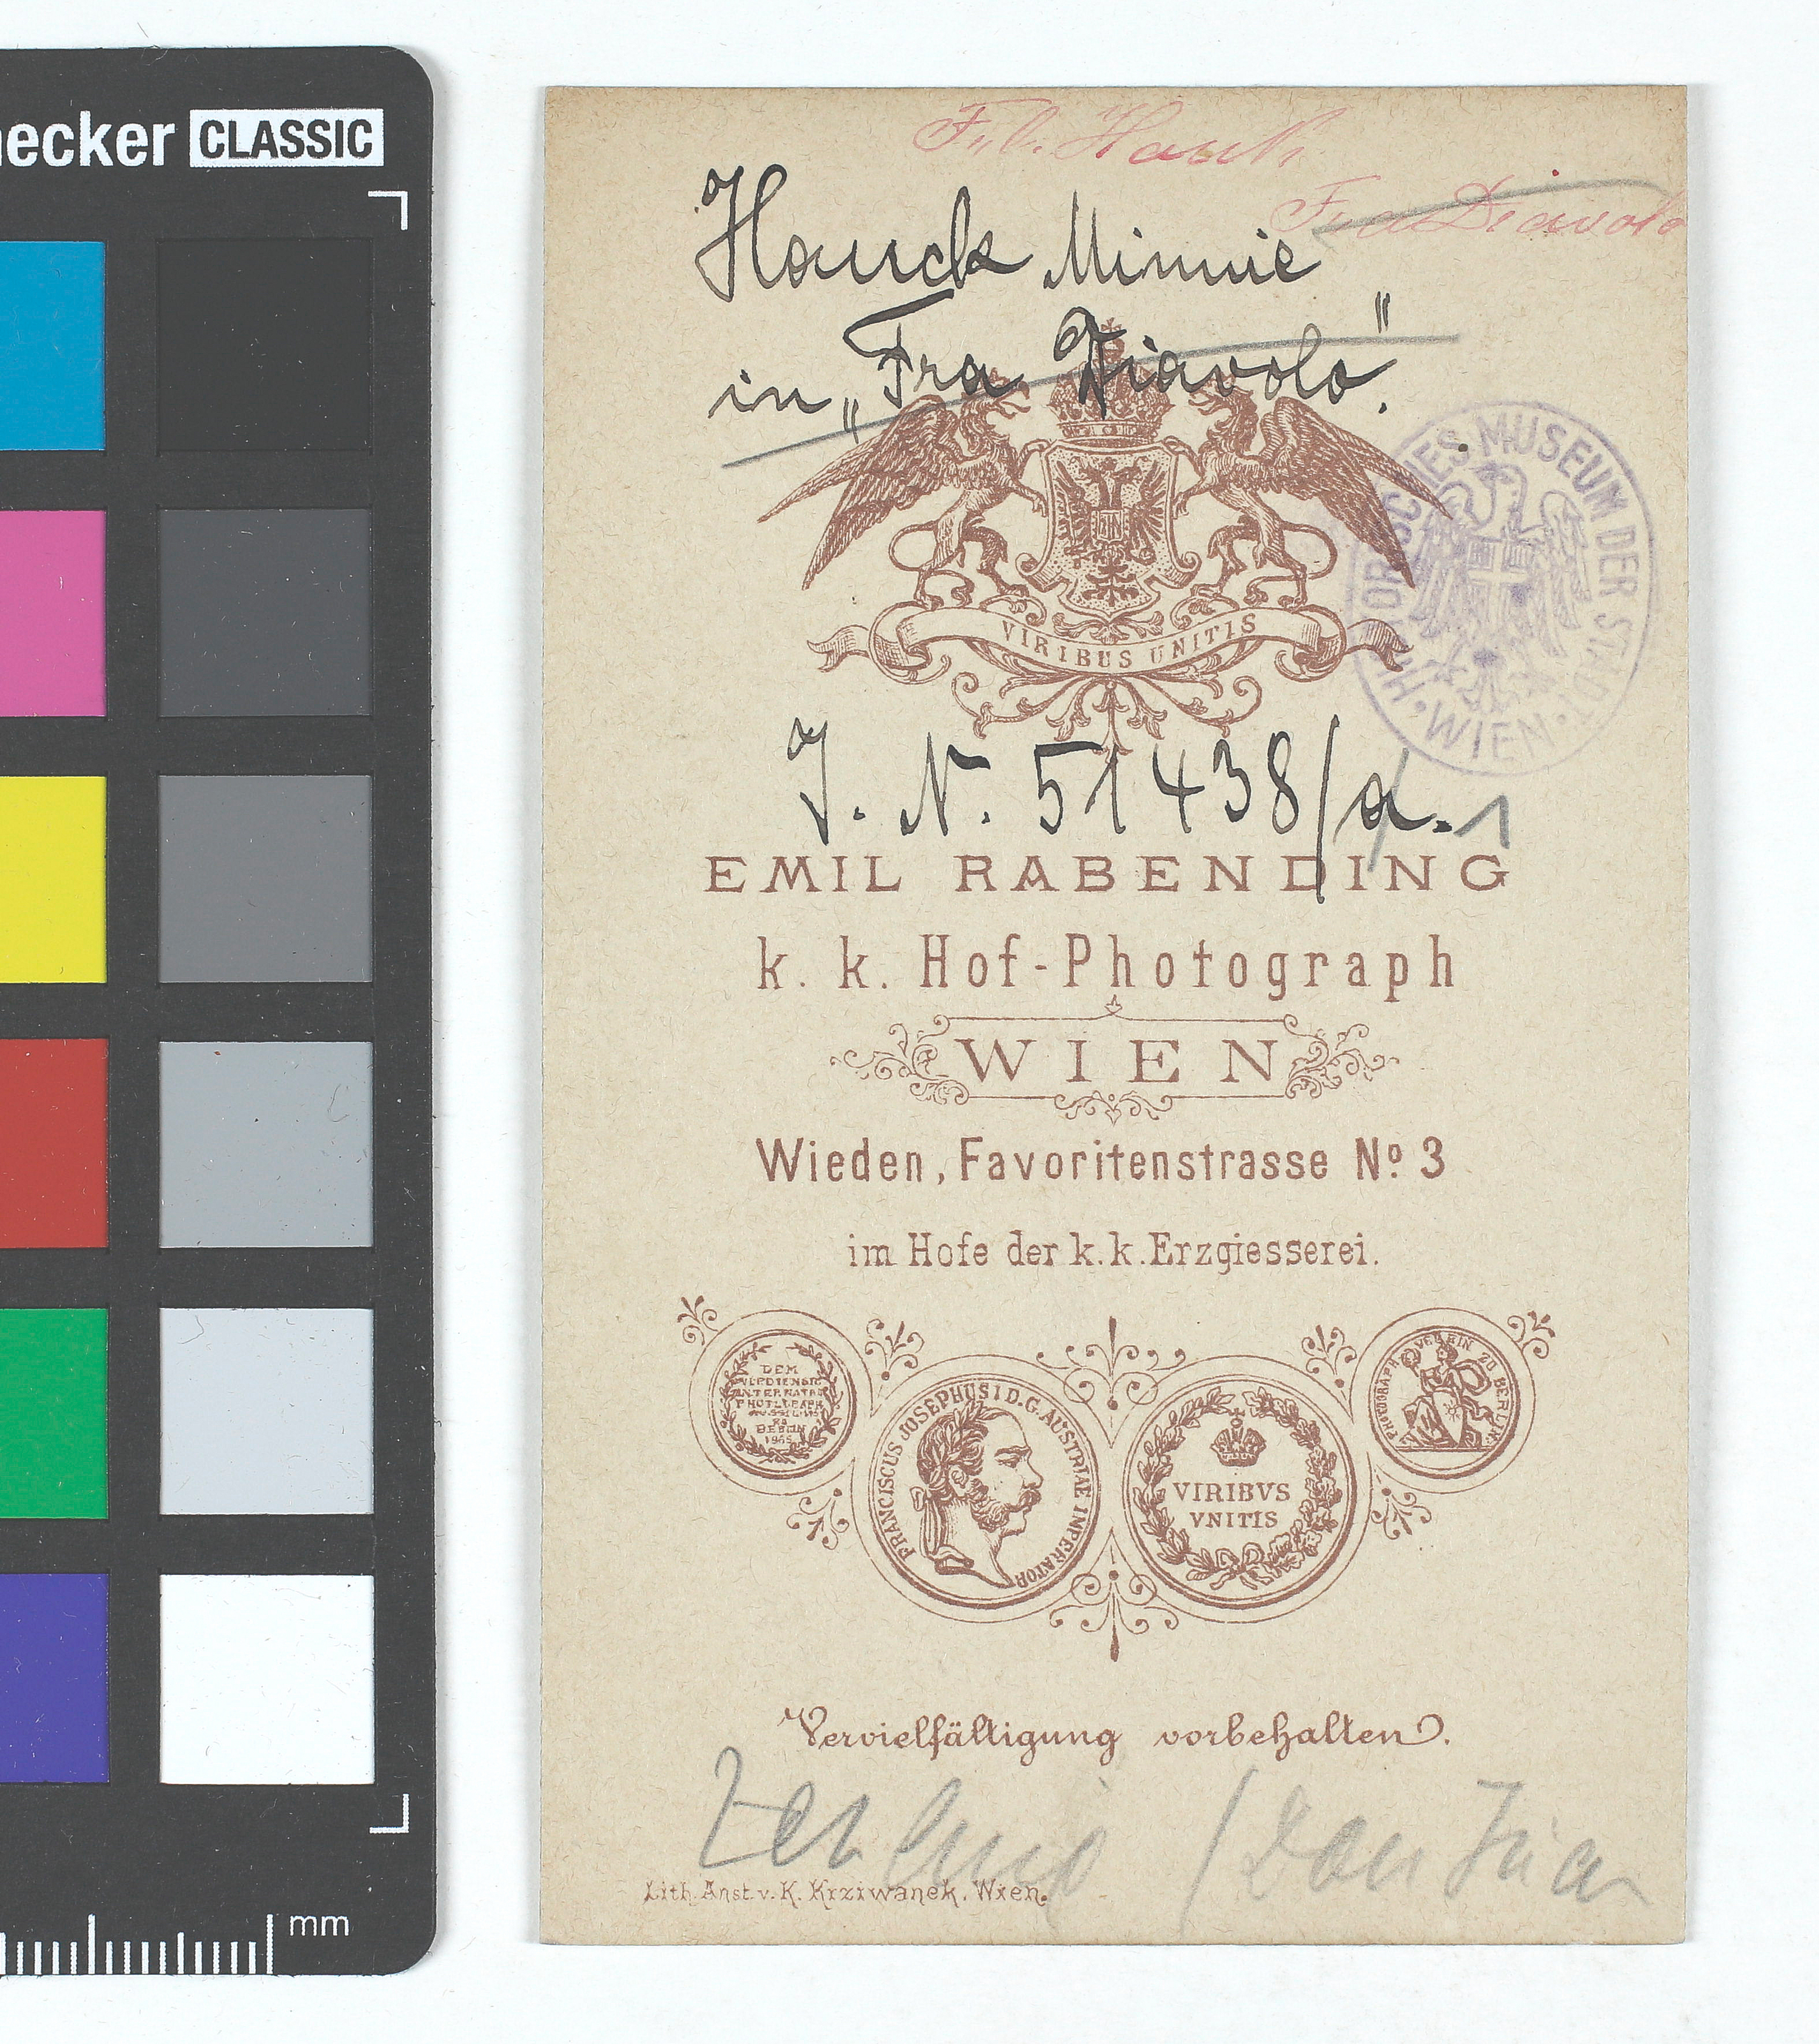 ecker CLASSIC
Frl. Hauk
Fra Diavolo
Hauck Minnie
in „Fra Diavolo".
HISTORISCHES MUSEUM DER STADT · WIEN ·
VIRIBUS UNITIS
J. N. 51438/a. 1
EMIL RABENDING
k. k. Hof-Photograph
WIEN
Wieden, Favoritenstrasse No. 3
im Hofe der k. k. Erzgiesserei.
DEM
VERDIENSTE
INTERNATE
PHOTOGRAPH
BERLIN
1865
FRANCISCUS JOSEPHUS I D. G. AUSTRIAE IMPERATOR
VIRIBVS
VNITIS
PHOTOGRAPH. VEREIN ZU BERLIN.
Vervielfältigung vorbehalten.
Zerline / Don Juan
Lith. Anst. v. K. Krziwanek, Wien.
mm